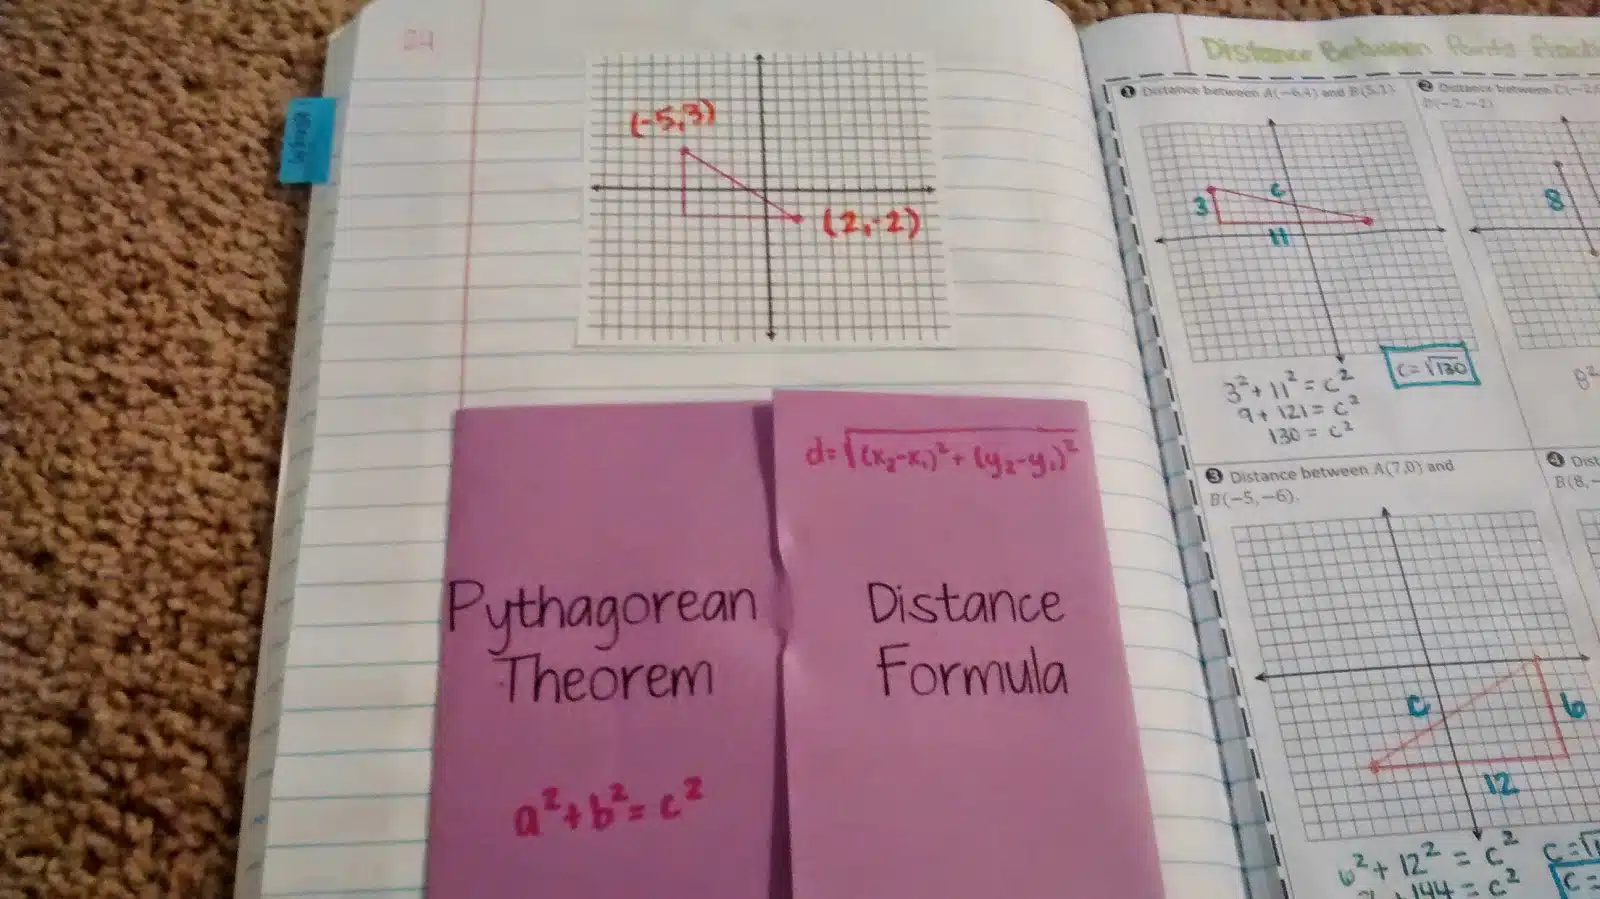 24
(-5,3)
(2,-2)
Pythagorean
Theorem
a²+b²=c²
d=√(x₂-x₁)²+(y₂-y₁)²
Distance
Formula
Distance Between Points
❶ Distance between A(−6,4) and B(5,1)
3
c
11
3²+11²=c²
9+121=c²
130=c²
c=√130
❷ Distance between
D(−2,−2)
8
8²
❸ Distance between A(7,0) and
B(−5,−6).
c
6
12
6²+12²=c²
+144=c²
c=√
c=
❹
B(8,